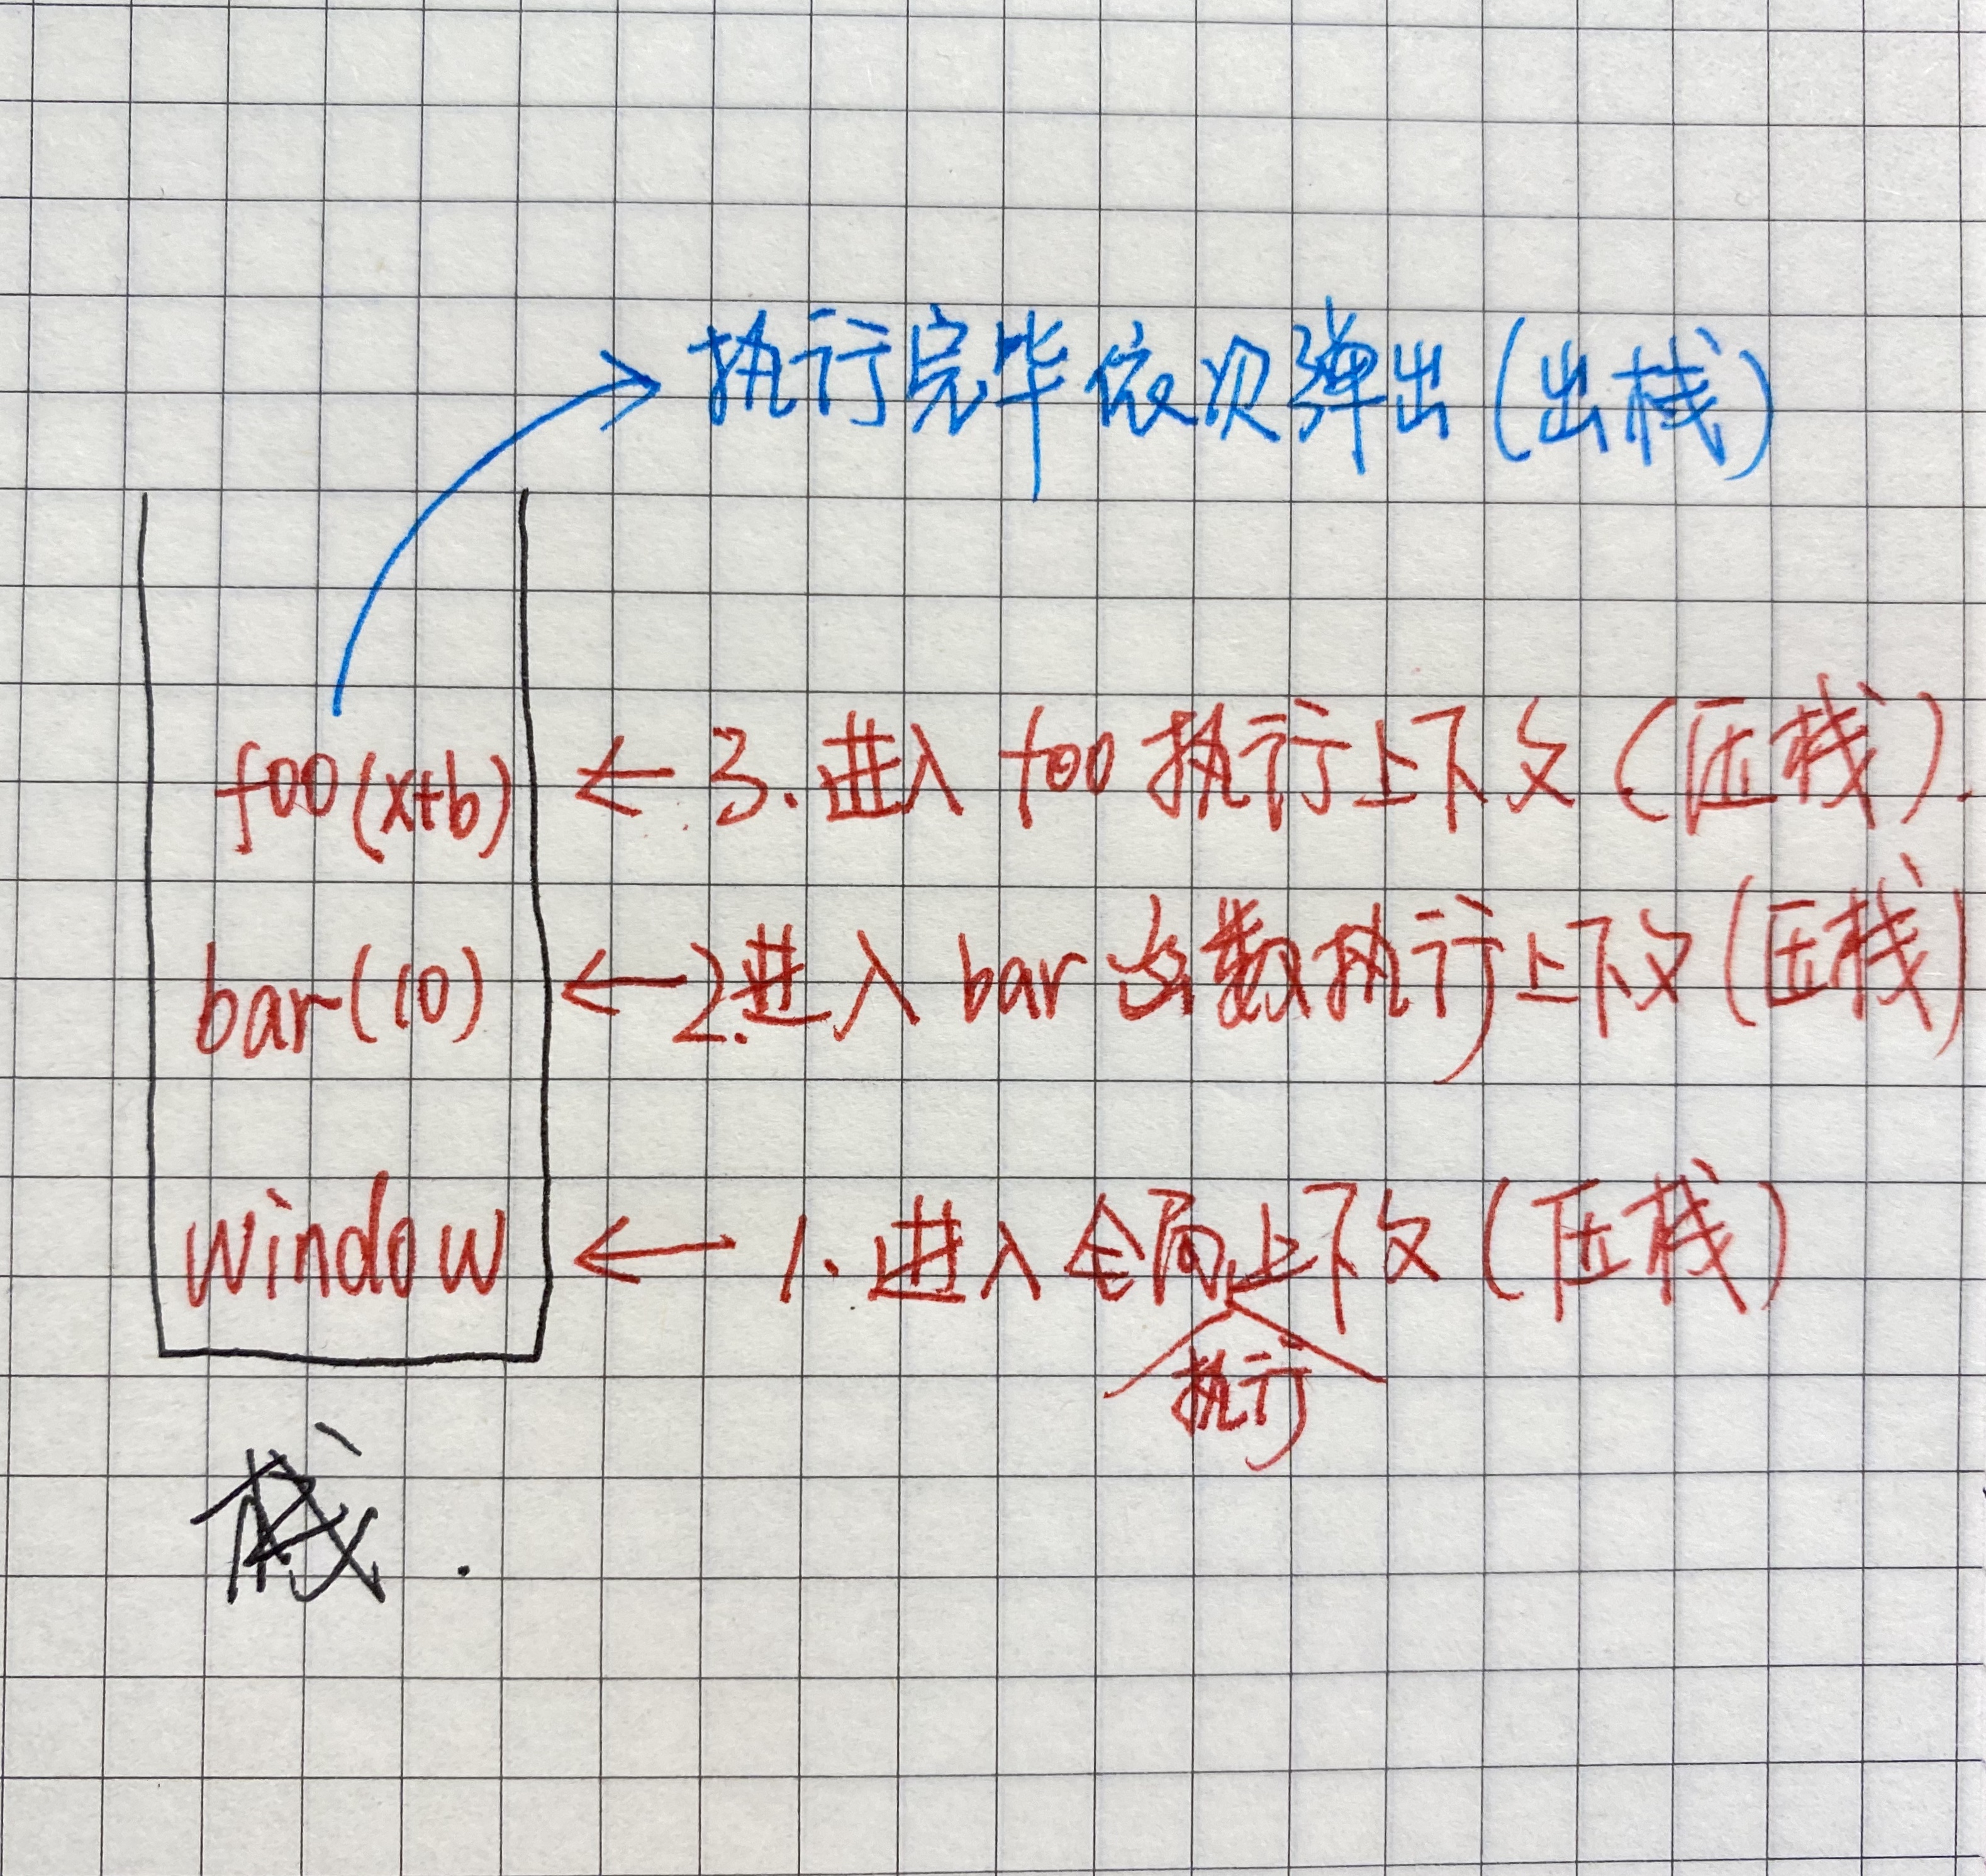 执行完毕依次弹出(出栈)
foo(x+b) ← 3. 进入 foo 执行上下文(压栈).
bar(10) ← 2.进入 bar 函数执行上下文(压栈)
window ← 1. 进入全局上下文(压栈)
执行
栈.